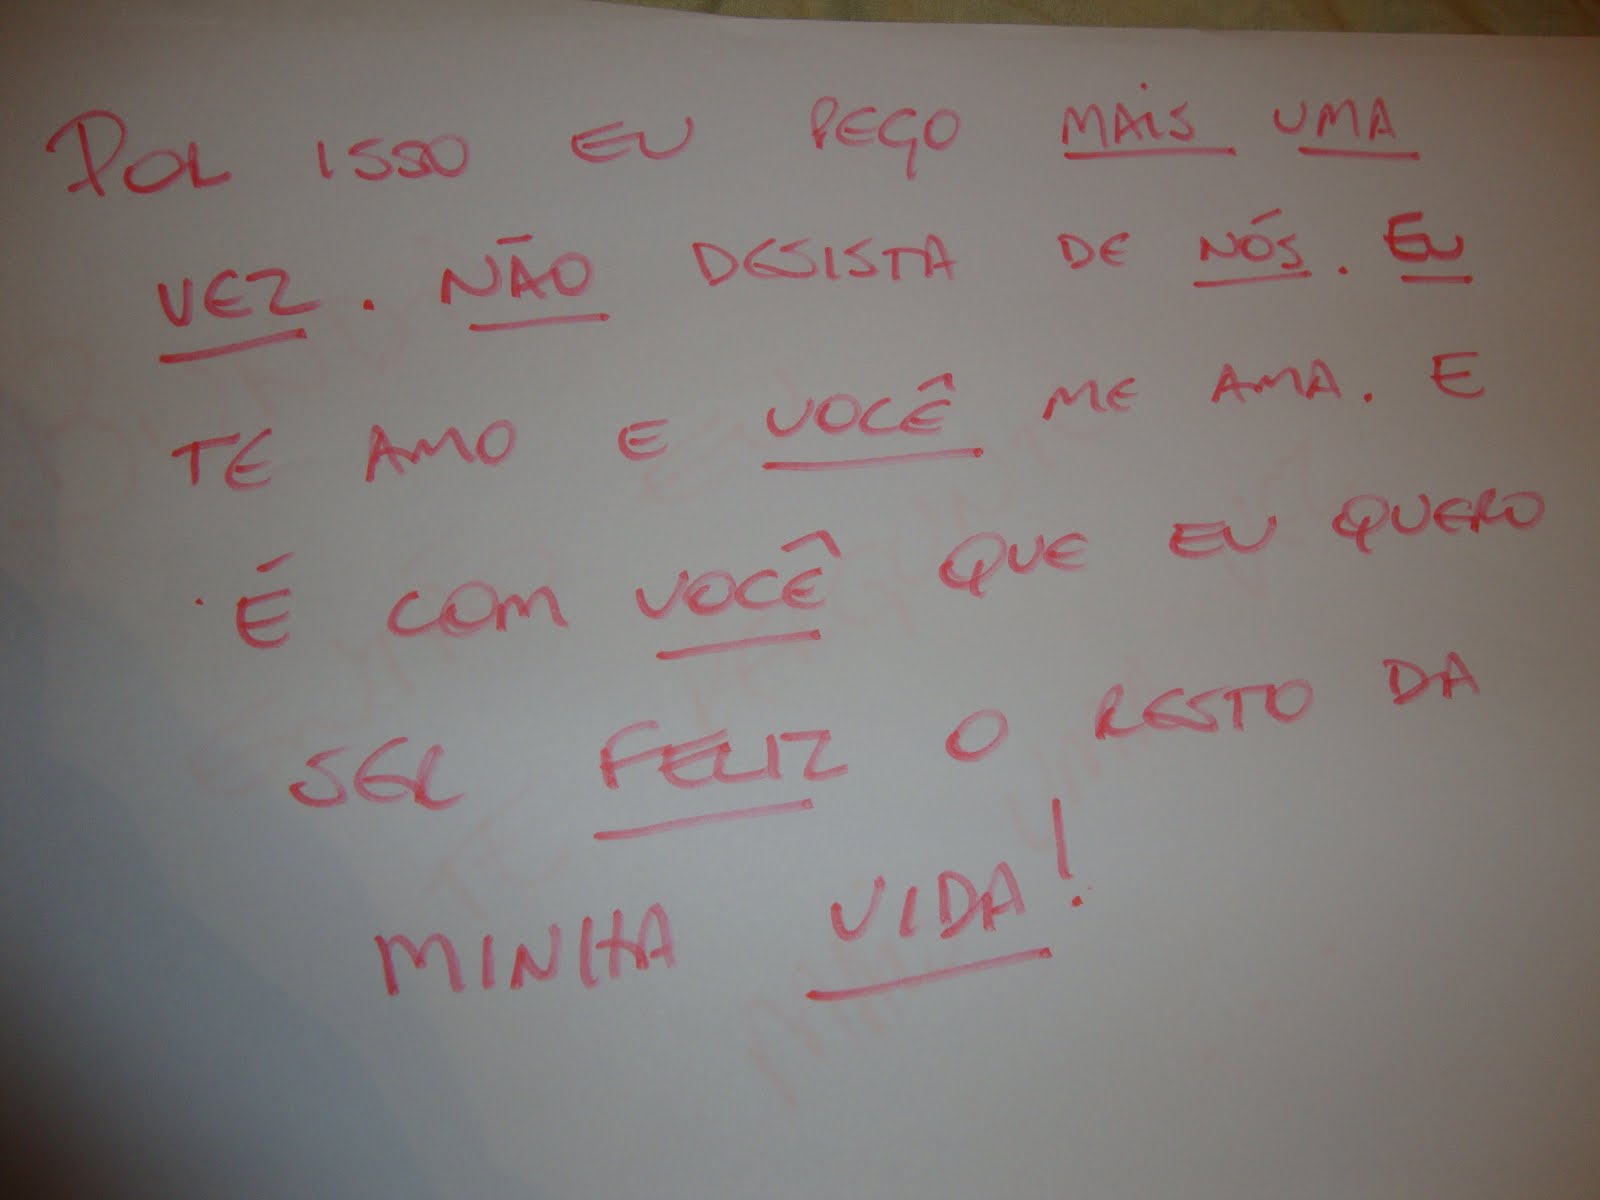 POR ISSO EU PEÇO MAIS UMA
VEZ. NÃO DESISTA DE NÓS. EU
TE AMO E VOCÊ ME AMA. E
É COM VOCÊ QUE EU QUERO
SER FELIZ O RESTO DA
MINHA VIDA!